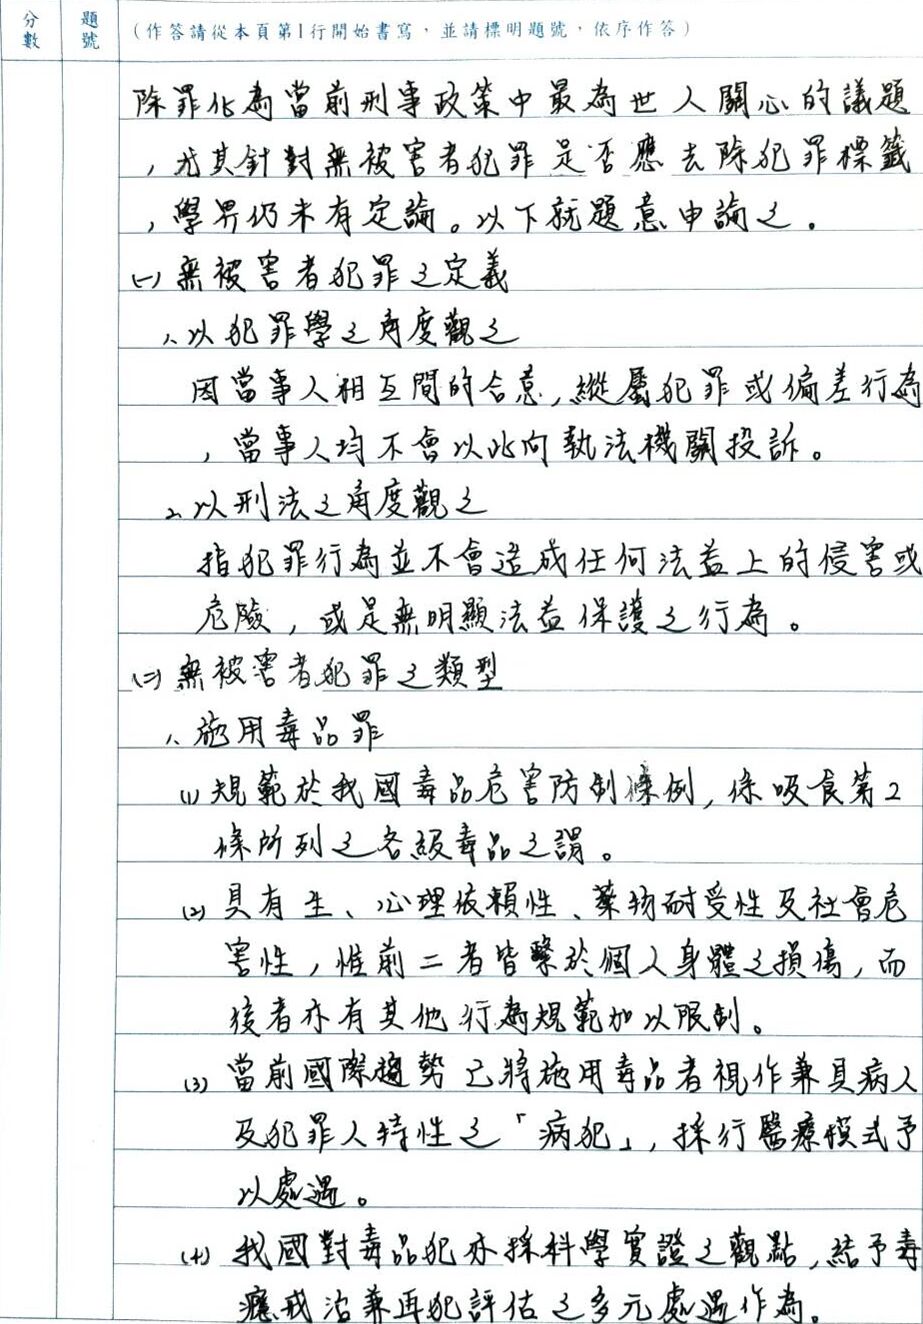 分數
題號
（作答請從本頁第1行開始書寫，並請標明題號，依序作答）
除罪化為當前刑事政策中最為世人關心的議題
，尤其針對無被害者犯罪是否應去除犯罪標籤
，學界仍未有定論。以下就題意申論之。
㈠無被害者犯罪之定義
1、以犯罪學之角度觀之
因當事人相互間的合意，縱屬犯罪或偏差行為
，當事人均不會以此向執法機關投訴。
2、以刑法之角度觀之
指犯罪行為並不會造成任何法益上的侵害或
危險，或是無明顯法益保護之行為。
㈡無被害者犯罪之類型
1、施用毒品罪
(1)規範於我國毒品危害防制條例，係吸食第2
條所列之各級毒品之謂。
(2)具有生、心理依賴性、藥物耐受性及社會危
害性，惟前二者皆繫於個人身體之損傷，而
後者亦有其他行為規範加以限制。
(3)當前國際趨勢已將施用毒品者視作兼具病人
及犯罪人特性之「病犯」，採行醫療模式予
以處遇。
(4)我國對毒品犯亦採科學實證之觀點，給予毒
癮戒治兼再犯評估之多元處遇作為。